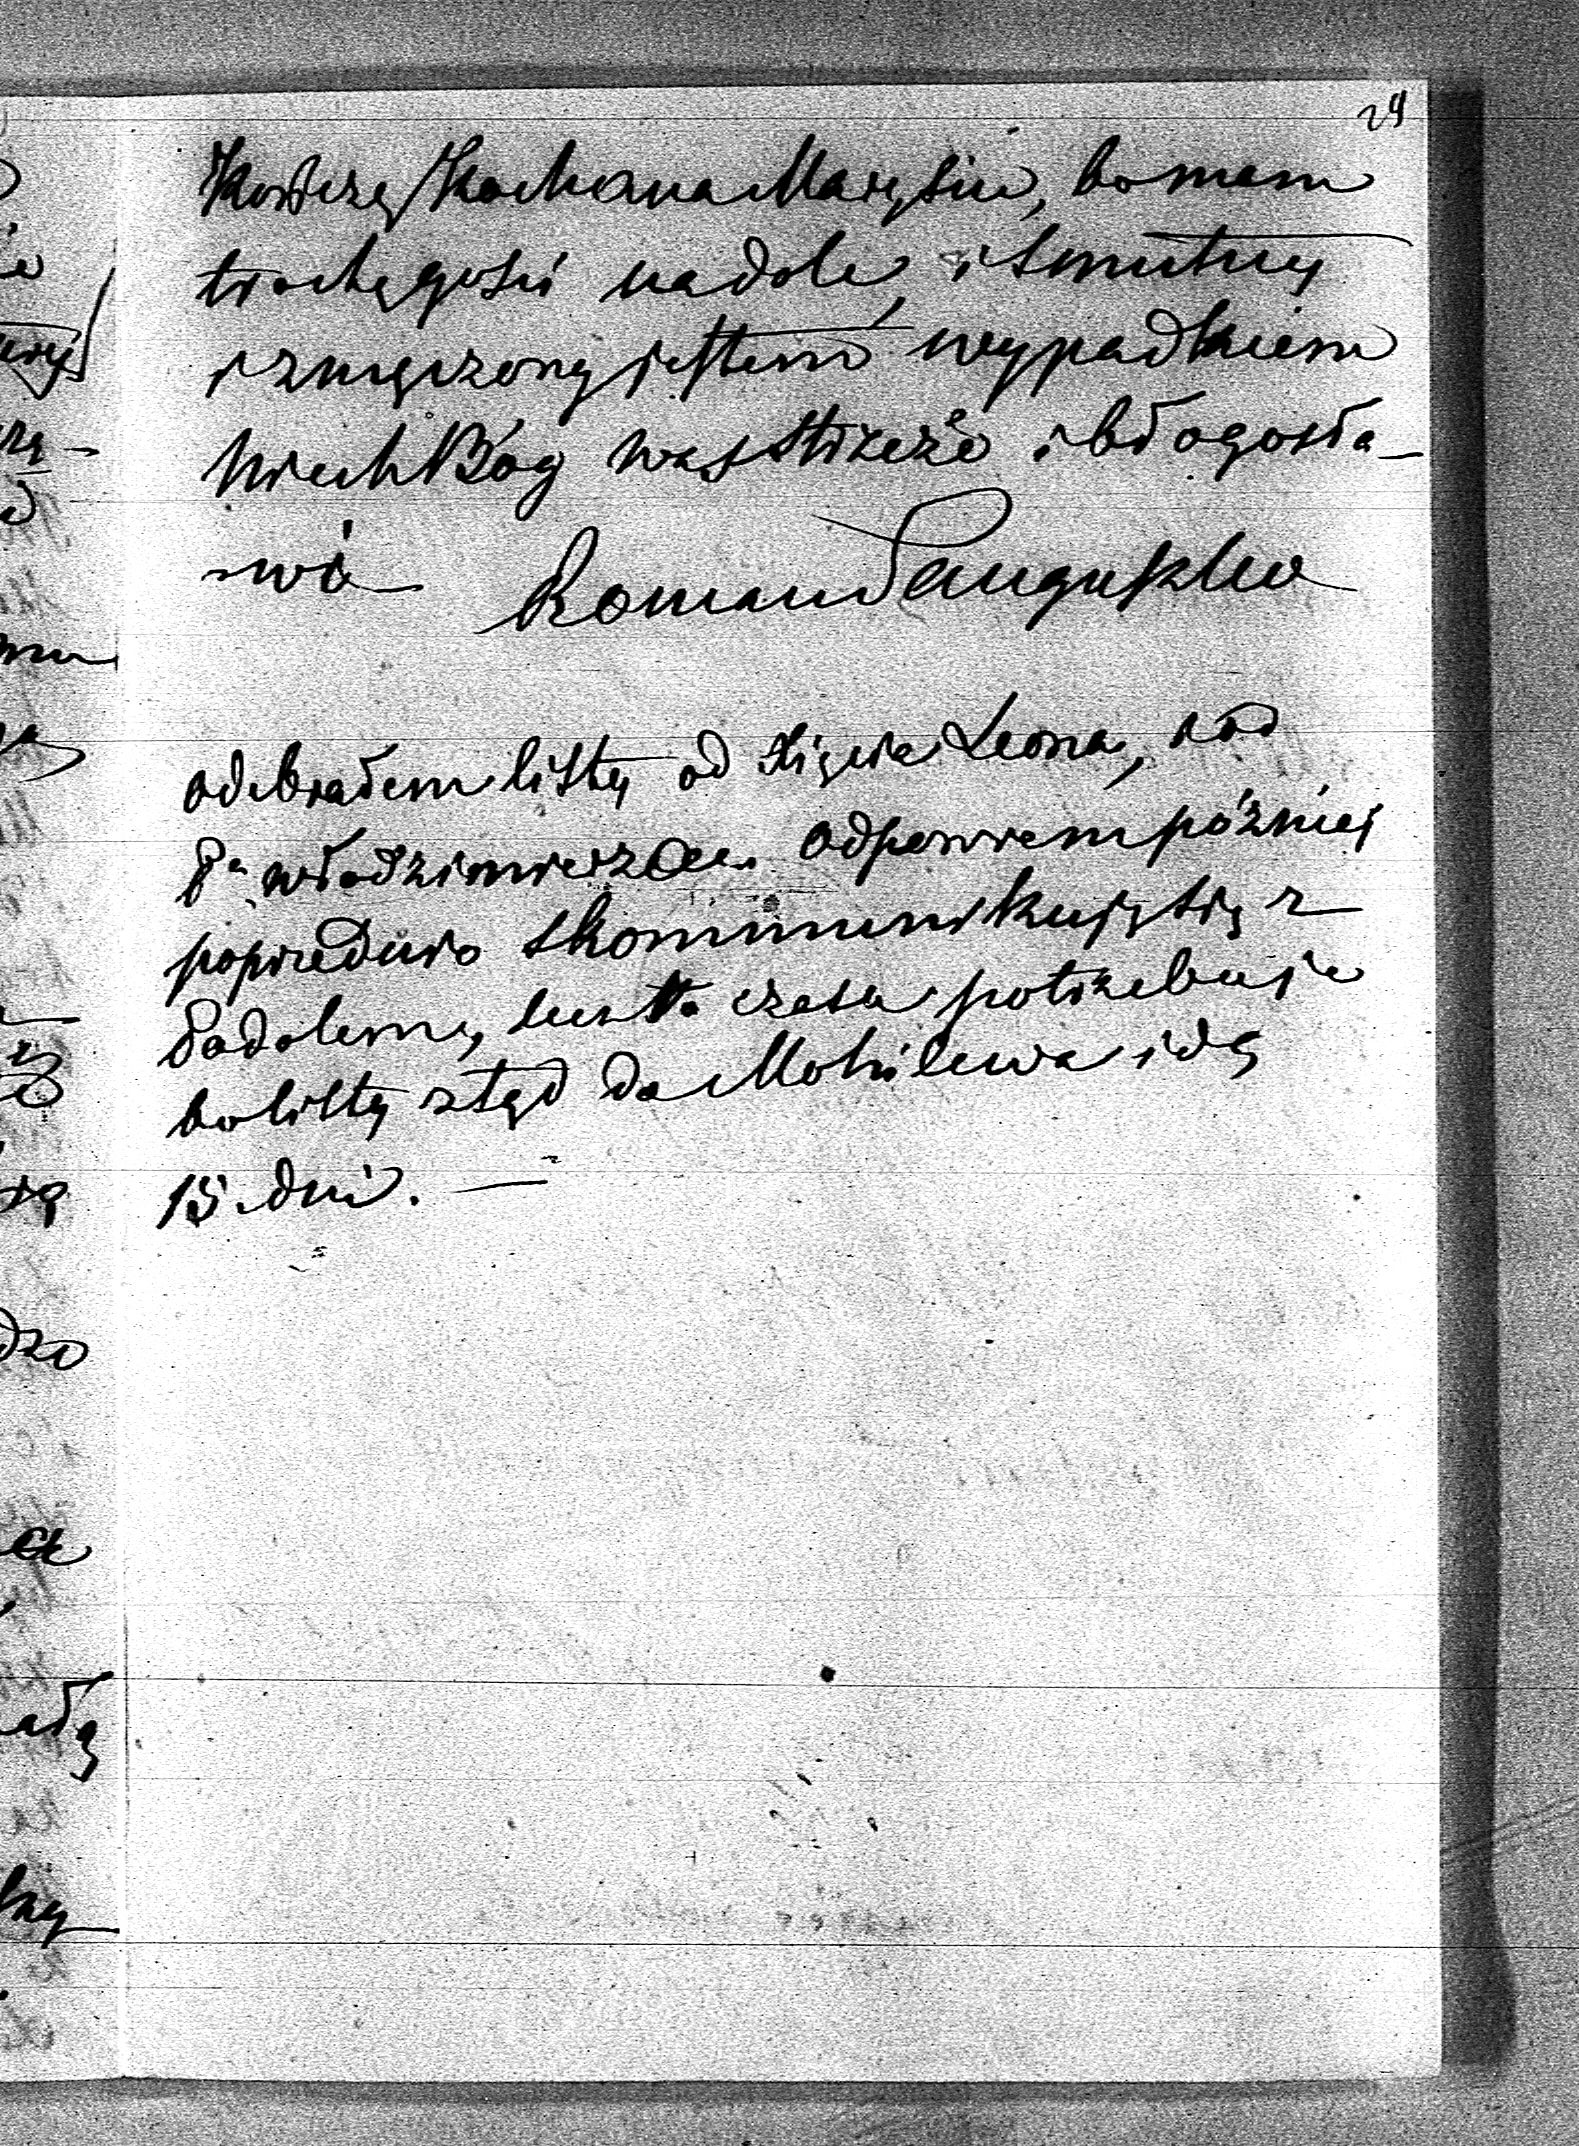 24
Kończę Kochana Marysiu, bo mam
trochę gości na dole, i smutny
i zmęczony jestem wypadkiem
Niech Bóg was strzeże i błogosła-
-wi Roman Sanguszko
odebrałem listy od Xięcia Leona, i od
Pa Włodzimierza odpowiem później
poprzednio skommunikuję się z
Padolem, lecz to czasu potrzebuje
bo listy ztąd do Mohilewa idą
15 dni. —